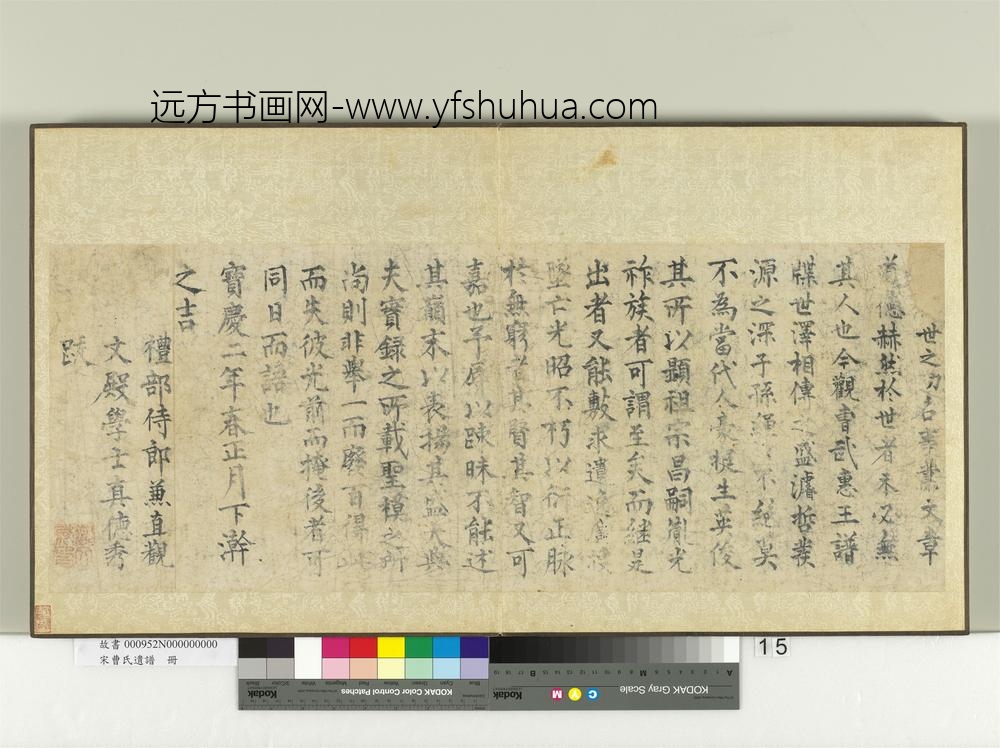 远方书画网-www.yfshuhua.com
世之功名事業文章
道德赫然於世者未必無
其人也今觀曹武惠王譜
牒世澤相傳之盛濬哲發
源之深子孫繩不絕莫
不為當代人豪挺生英俊
其所以顯祖宗昌嗣胤光
祚族者可謂至矣而繼是
出者又能敷求遺
墜亡光昭不朽以衍正脉
於無窮其賢其智又可
嘉也予辱以疎昧不能述
其巔末以表揚其盛大與
夫寶錄之所載聖模之所
尚則非舉一而廢百得此
而失彼光前而掩後者可
同日而語也
寶慶二年春正月下澣
之吉
禮部侍郎兼直觀
文殿學士真德秀
跋
故書 000952N000000000
宋曹氏遺譜 冊
15
KODAK Color Control Patches
Kodak
KODAK Gray Scale
Kodak
C Y M
Blue Cyan Green Yellow Red Magenta White 3/Color Black
A 1 2 3 4 5 6 M 8 9 10 11 12 13 14 15 B 17 18 19